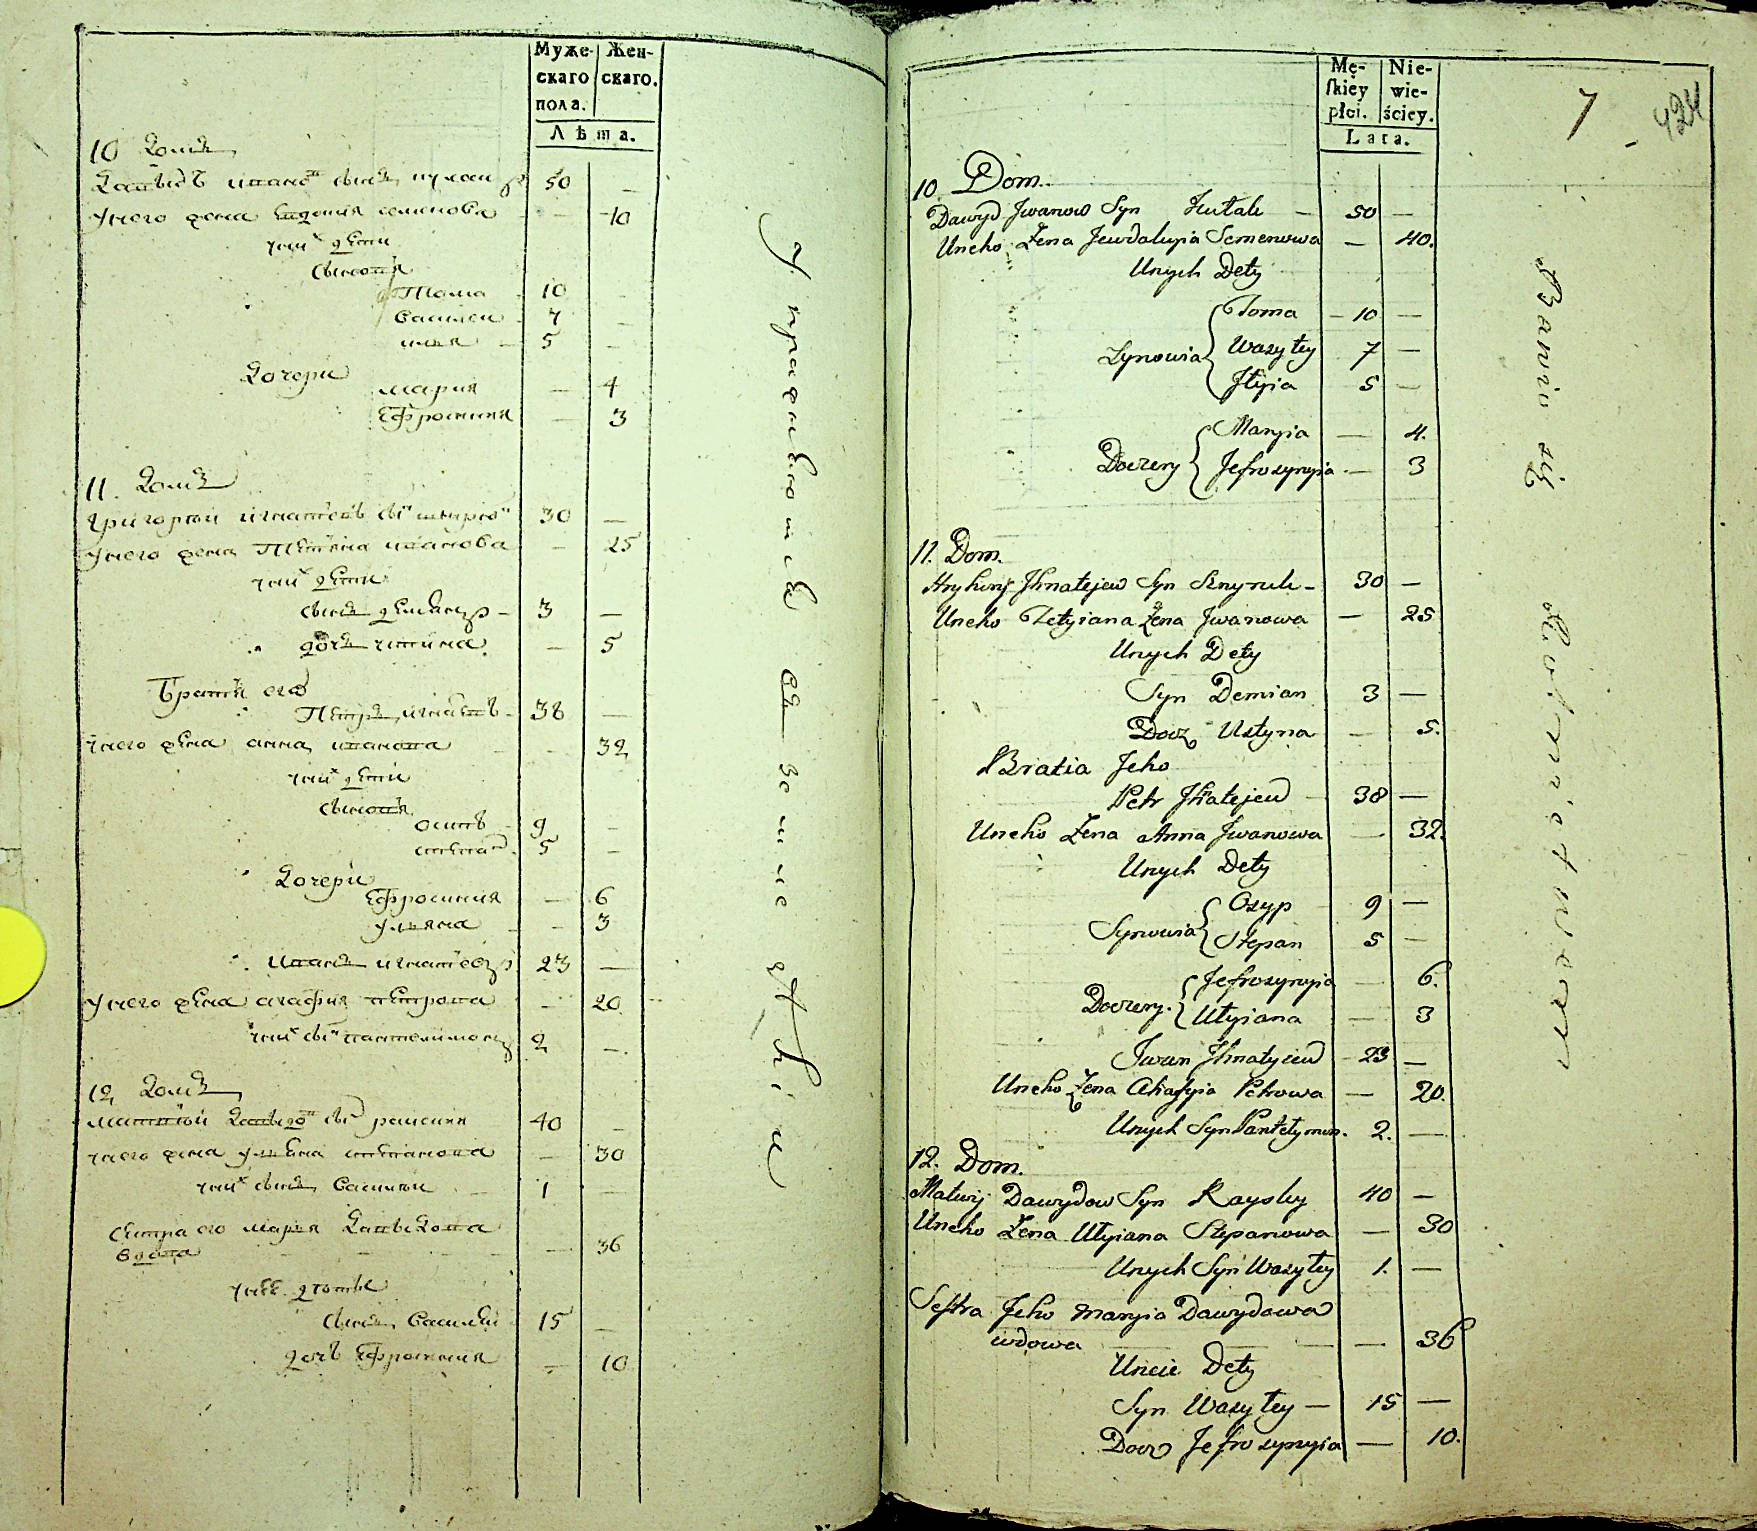 Муже-
скаго
пола.
Жен-
скаго.
Лѣта.
10 Домъ
50
У него жена Евдокия семенова
10
у них дети
сыновя
Тома 10
василеи 7
илия 5
Дочери
мария 4
Ефросиния 3
11. Домъ
Григорий игнатёвъ 30
У него жена Тетяна иванова 25
у них дети
сынъ демянъ 3
дочь устина 5
Братя его
Петръ игнатевъ 38
У него жена анна иванова 32
у них дети
сыновя
осипъ 9
степанъ 5
Дочери
Ефросиния 6
уляна 3
Иванъ игнатёвъ 23
У него жена агафия петрова 20
2
12 Домъ
матвий 40
У него жена улияна степанова 30
у них сынъ василии 1
сестра его мария Давыдова
вдова 36
у нее дети
сынъ василеи 15
дочь Ефросиния 10
Упражняются въ земледѣліи
Mę-
ſkiey
płci.
Nie-
wie-
ściey.
Lata.
7
424
10. Dom.
Dawyd Jwanow Syn 50 —
Uneho Żena Jewdakyia Semenowa — 40.
Unych Dety
Synowia Toma 10 —
Wasyłey 7 —
Jłyia 5 —
Doczery Maryia — 4.
Jefrosynyia — 3
11. Dom.
Hryhory Jhnatejew Syn 30 —
Uneho Tetyiana Żena Jwanowa — 25
Unych Dety
Syn Demian 3 —
Docz Ustyna — 5.
Bratia Jeho
Petr Jhnatejew 38 —
Uneho Żena Anna Jwanowa — 32.
Unych Dety
Synowia Osyp 9 —
Stepan 5 —
Doczery. Jefrosynyia — 6.
Ulyiana — 3
Jwan Jhnatyiew 23 —
Uneho Żena Ahafyia Petrowa — 20.
Unych Syn Pantełymon. 2. —
12. Dom.
Matwij Dawydow Syn Raysky 40 —
Uneho Żena Ulyiana Stepanowa — 30
Unych Syn Wasyłey 1. —
Sestra Jeho Maryia Dawydowa
wdowa — 36
Uneie Dety
Syn Wasyłey — 15 —
Docz Jefrosynyia — 10.
Bawią się Rolnictwem